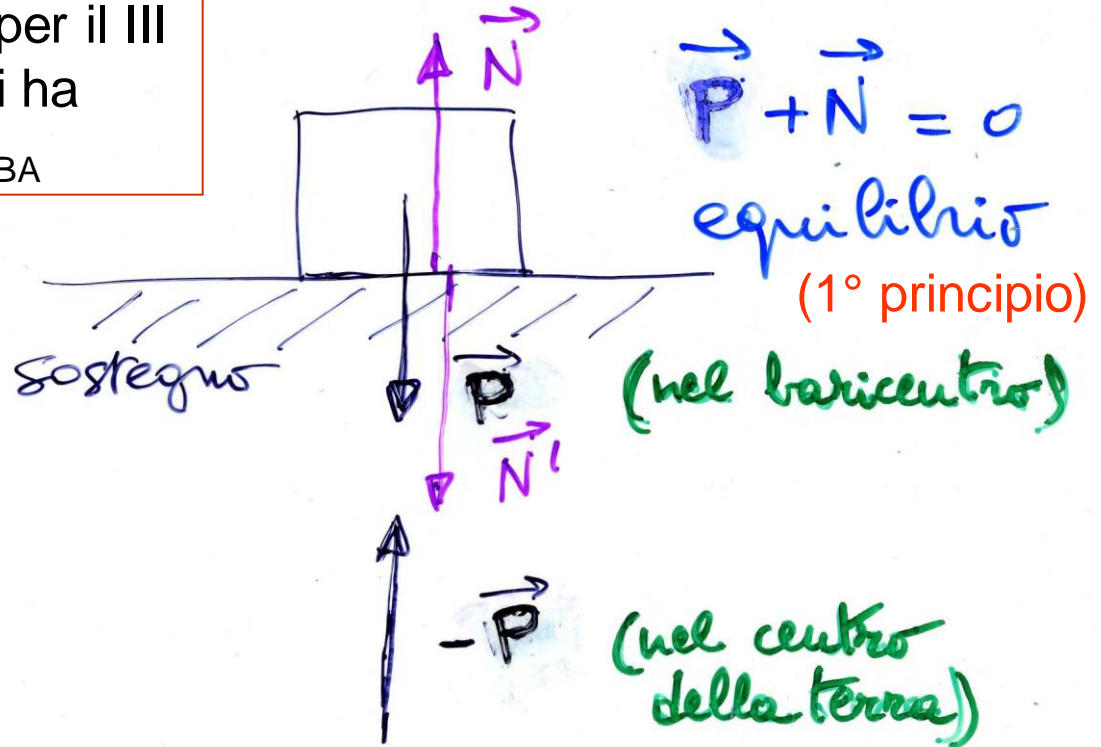 per il III
i ha
BA
N
P + N = 0
equilibrio
(1° principio)
sostegno
P
(nel baricentro)
N'
-P
(nel centro
della terra)